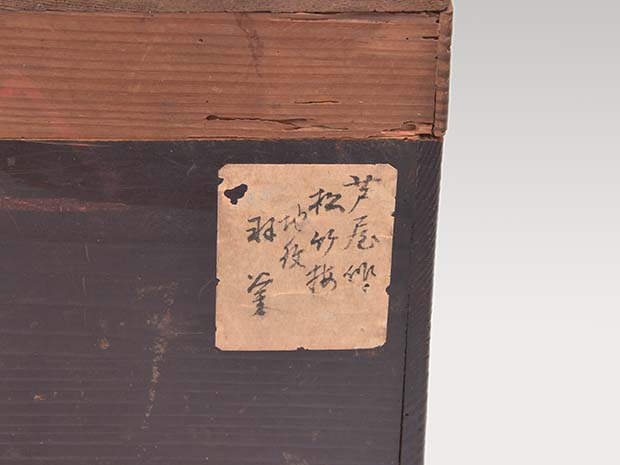 芦屋作
松竹梅
地紋
羽釜